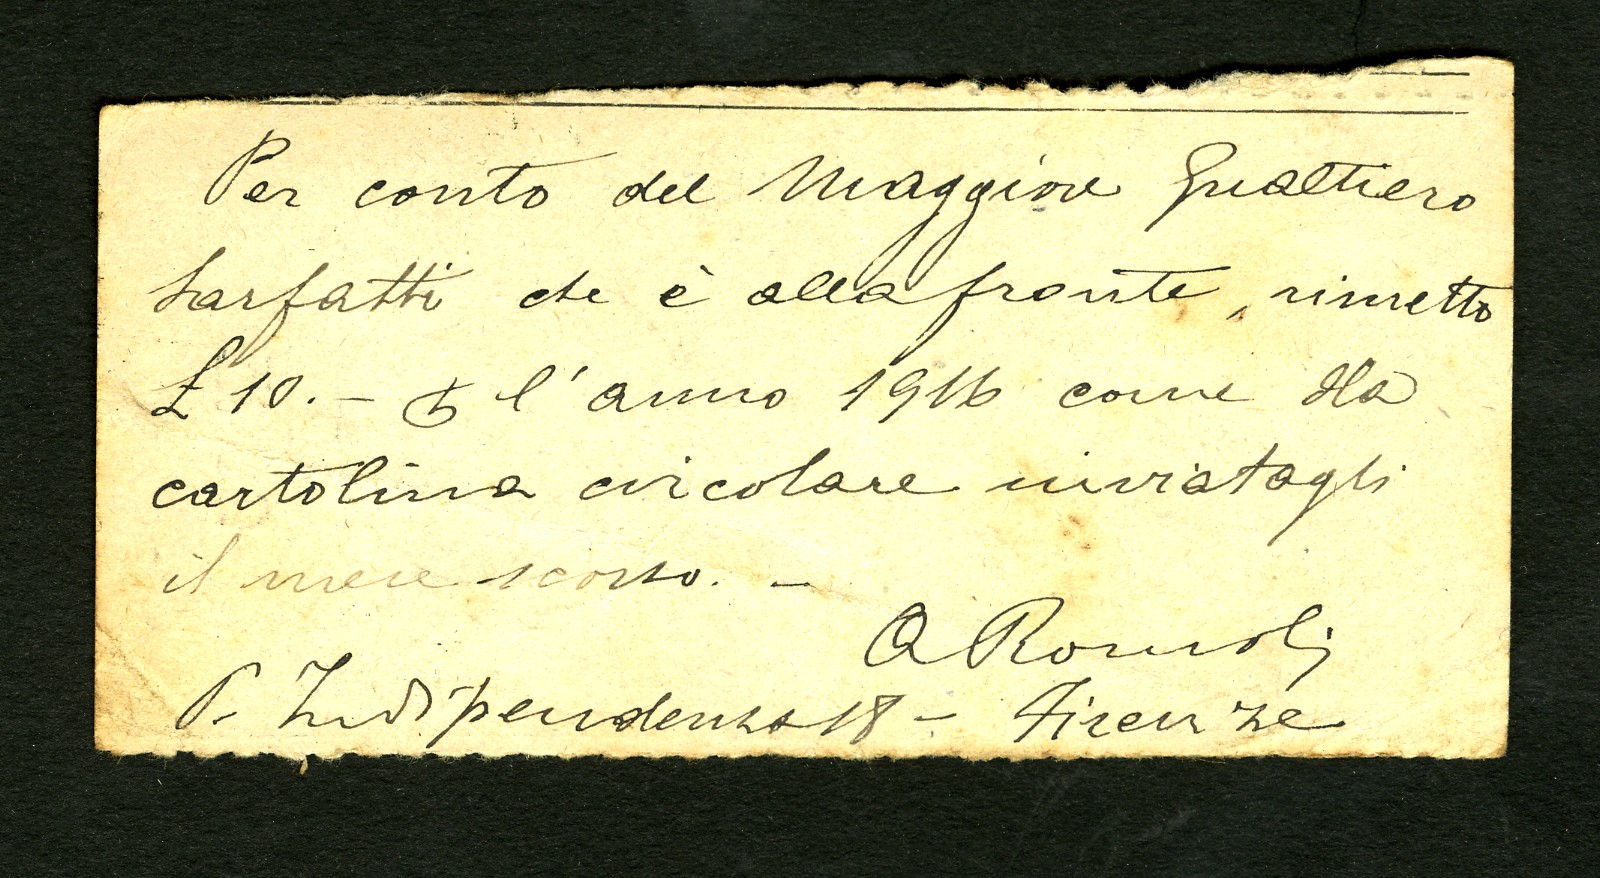 Per conto del Maggiore Gualtiero
Sarfatti che è alla fronte, rimetto
£ 10. - l'anno 1916 come da
cartolina circolare inviatagli
il mese scorso. -
A Romoli
P. Indipendenza 18 - Firenze